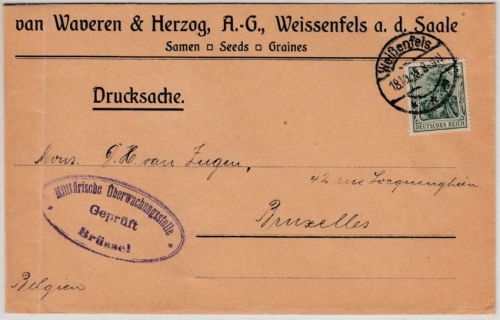 van Waveren & Herzog, A.-G., Weissenfels a. d. Saale
Samen □ Seeds □ Graines
Weißenfels
Drucksache.
DEUTSCHES REICH
Mons. G. H. van Zugen,
42 rue Locquenghien
Bruxelles
Militärische Überwachungsstelle
Geprüft
Brüssel
Belgien